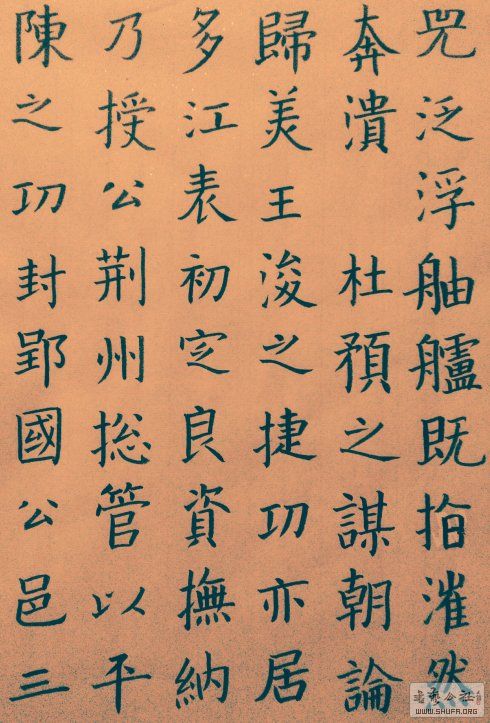 兕泛浮舳艫既指漼然
奔潰 杜預之謀朝論
歸美王浚之捷功亦居
多江表初定良資撫納
乃授公荊州捴管以平
陳之功封郢國公邑三
WWW.SHUFA.ORG